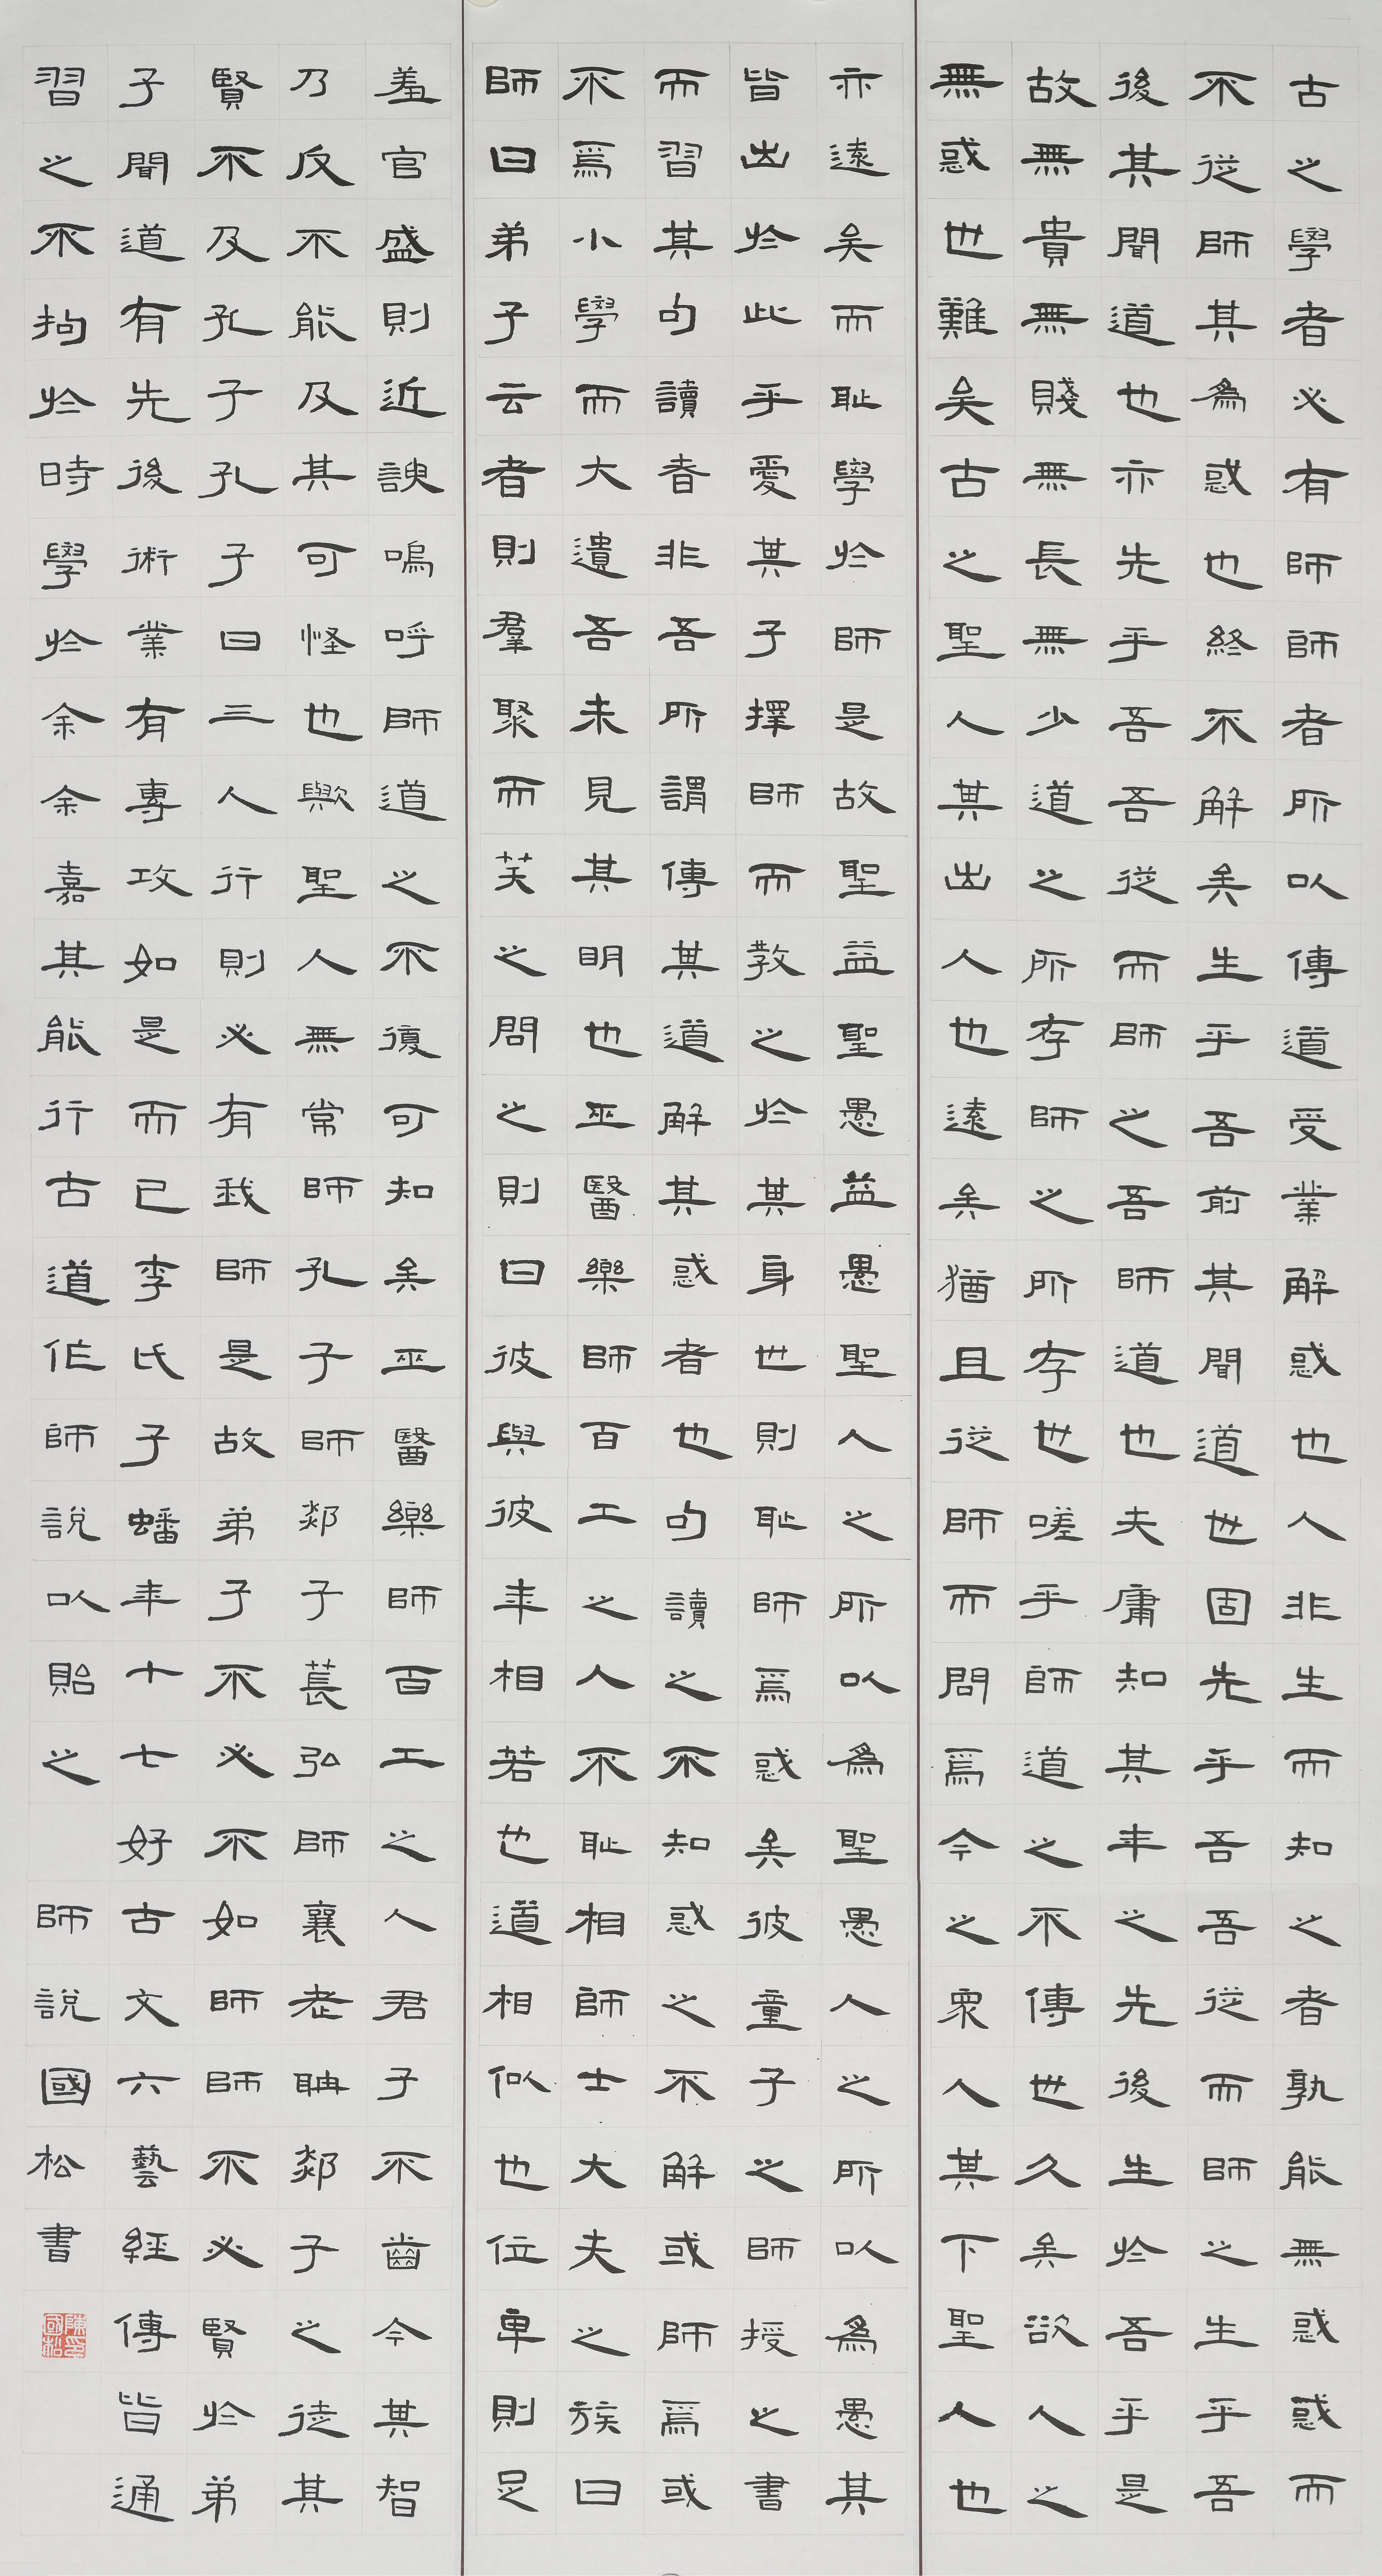 古之學者必有師師者所以傳道受業解惑也人非生而知之者孰能無惑惑而
不從師其為惑也終不解矣生乎吾前其聞道也固先乎吾吾從而師之生乎吾
後其聞道也亦先乎吾吾從而師之吾師道也夫庸知其年之先後生於吾乎是
故無貴無賤無長無少道之所存師之所存也嗟乎師道之不傳也久矣欲人之
無惑也難矣古之聖人其出人也遠矣猶且從師而問焉今之眾人其下聖人也
亦遠矣而耻學於師是故聖益聖愚益愚聖人之所以為聖愚人之所以為愚其
皆出於此乎愛其子擇師而教之於其身也則耻師焉惑矣彼童子之師授之書
而習其句讀者非吾所謂傳其道解其惑者也句讀之不知惑之不解或師焉或
不焉小學而大遺吾未見其明也巫醫樂師百工之人不耻相師士大夫之族曰
師曰弟子云者則羣聚而笑之問之則曰彼與彼年相若也道相似也位卑則足
羞官盛則近諛嗚呼師道之不復可知矣巫醫樂師百工之人君子不齒今其智
乃反不能及其可怪也歟聖人無常師孔子師郯子萇弘師襄老聃郯子之徒其
賢不及孔子孔子曰三人行則必有我師是故弟子不必不如師師不必賢於弟
子聞道有先後術業有專攻如是而已李氏子蟠年十七好古文六藝經傳皆通
習之不拘於時學於余余嘉其能行古道作師說以貽之 師說國松書
陳印國松